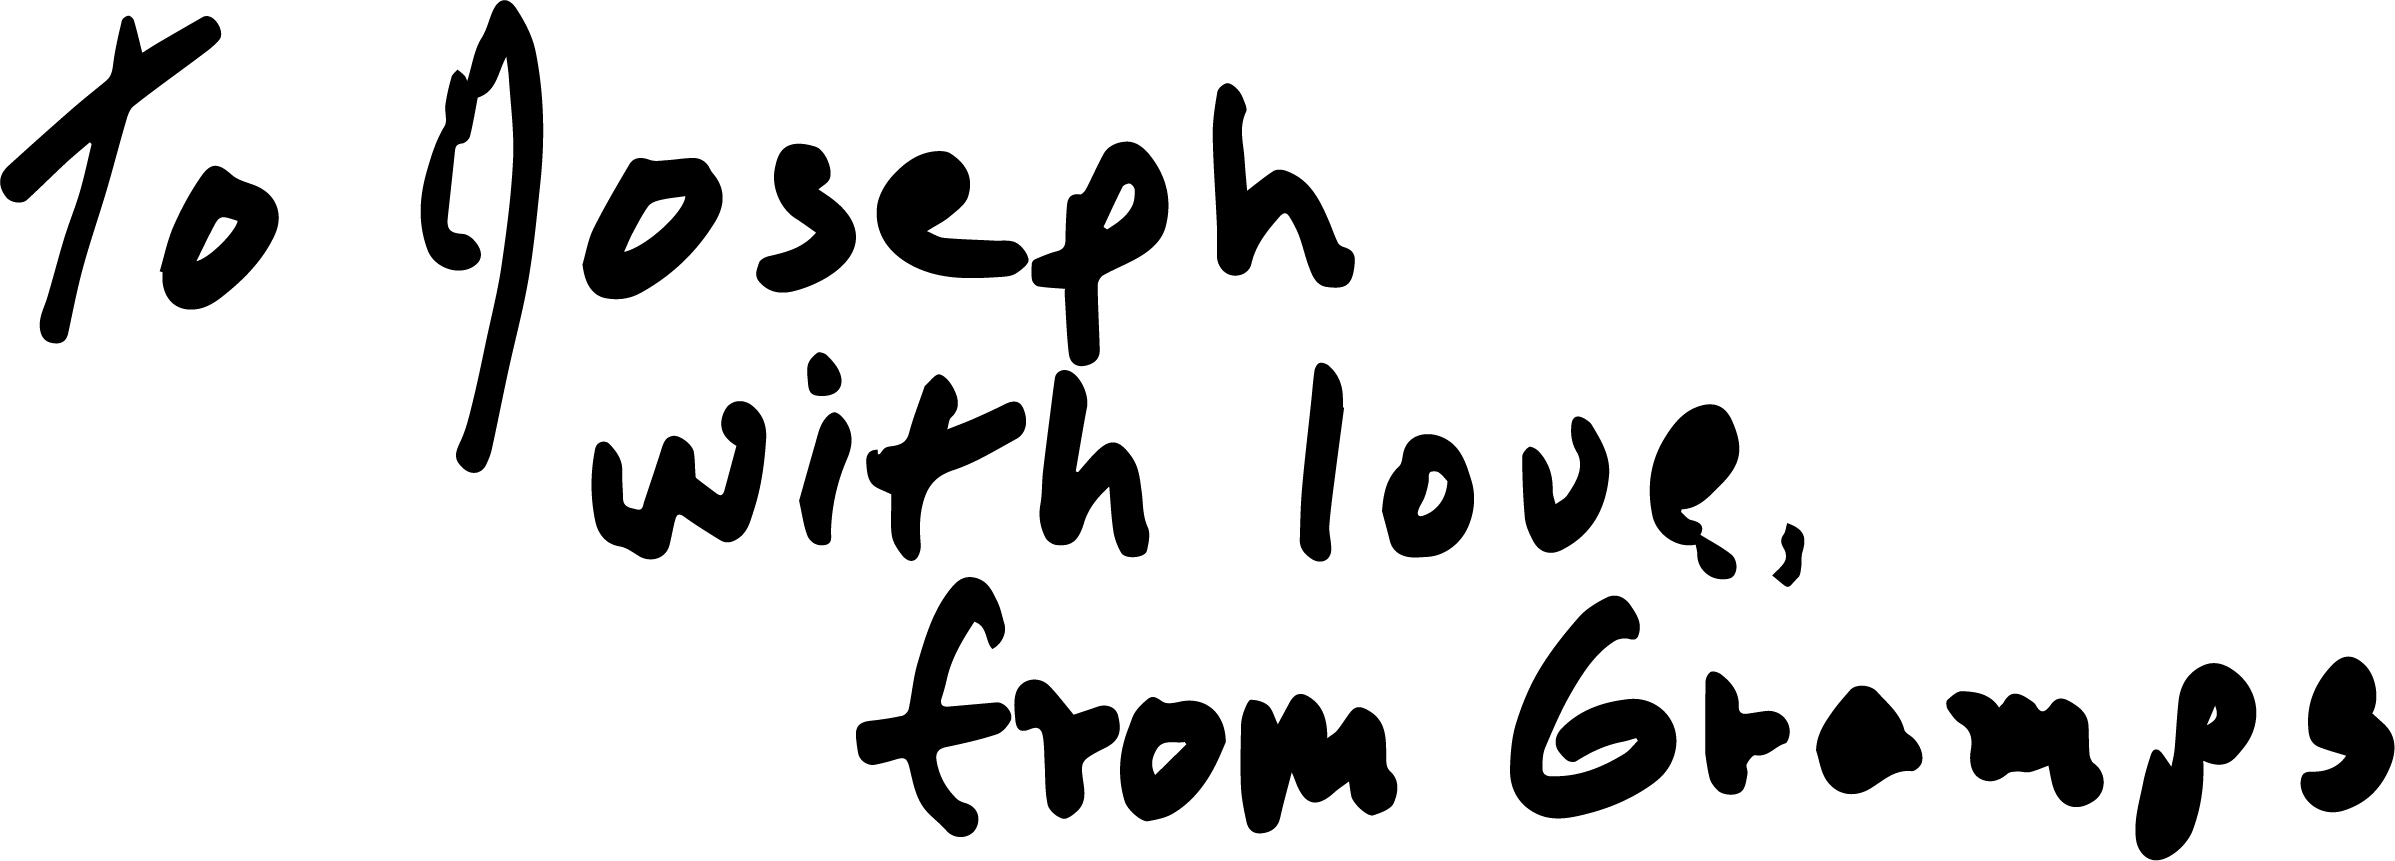 To Joseph
with love,
from Gramps